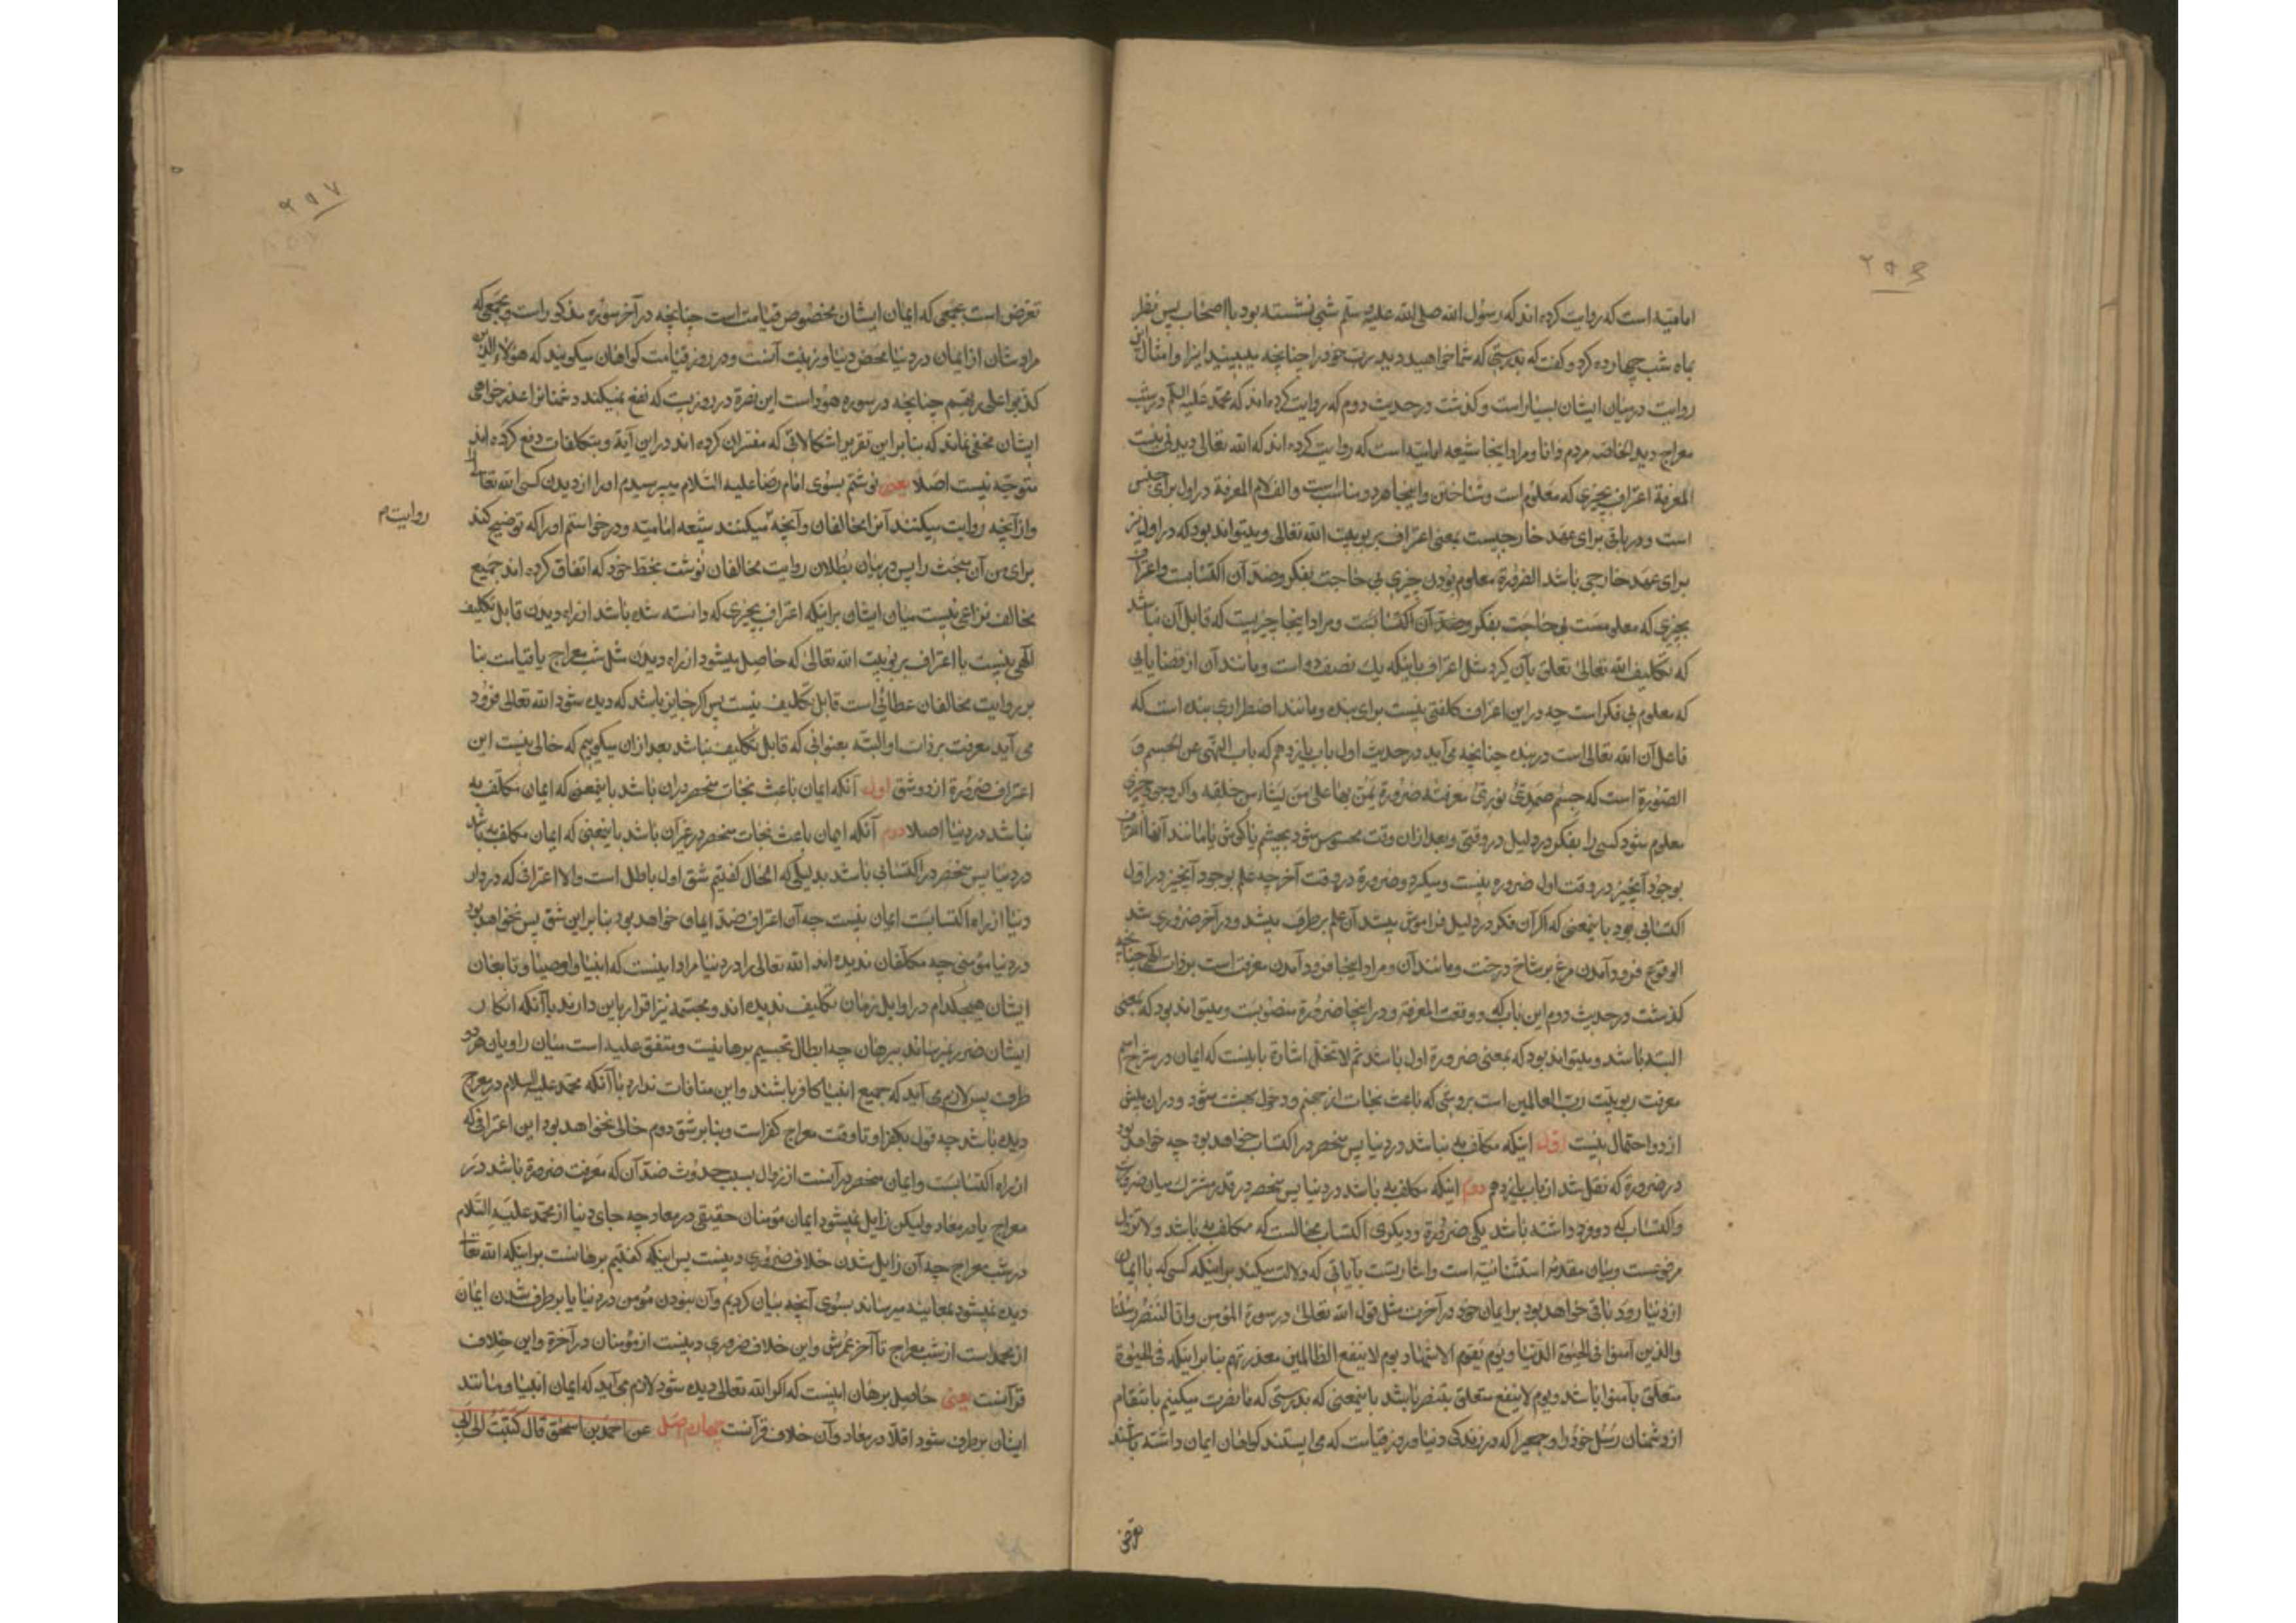 ۲۵۶
امامیه است که روایت کرده اند که رسول الله صلی الله علیه و سلم شبی نشسته بود با اصحاب پس نظر
بماه شب چهارده کرد و گفت که بدرستی که شما خواهید دید رب خود را چنانچه میبینید اینرا و امثال این
روایت در میان ایشان بسیار است و گذشت در حدیث دوم که روایت کرده اند که محمد علیه السلم در شب
معراج دید الخاصه مردم دانا و مراد اینجا شیعه امامیه است که روایت کرده اند که الله تعالی دیدنی نیست
المعرفة اعتراف بچیزی که معلوم است و شناختن و اینجا هر دو مناسبست و الف لام المعرفة در اول برای جنس
است و در باقی برای عهد خارجیست بمعنی اعتراف بربوبیت الله تعالی و میتواند بود که در اول نیز
برای عهد خارجی باشد الضرورة معلوم بودن چیزی بی حاجت بفکر و ضد آن اکتسابست و اعتراف
بچیزی که معلومست بی حاجت بفکر و ضد آن اکتسابست و مراد اینجا چیزیست که قابل آن نباشد
که تکلیف الله تعالی تعلق بآن گیرد مثل اعتراف باینکه یک نصف دو است و مانند آن از قضایایی
که معلوم بی فکر است چه در این اعتراف کلفتی نیست برای بنده و مانند اضطراری بنده است که
فاعل آن الله تعالی است در بنده چنانچه می آید در حدیث اول باب یازدهم که باب النهی عن الجسم و
الصورة است که جسم صمدی نوری معرفته ضرورة یمن بها علی من یشاء من خلقه و اگر وجود چیزی
معلوم شود کسی را بفکر در دلیل در وقتی و بعد از ان وقت محسوس شود بچشم یا گوش یا مانند آنها اعتراف
بوجود آنچیز در وقت اول ضروره نیست و میگردد ضرورة در وقت آخر چه علم بوجود آنچیز در اول
اکتسابی بود باینمعنی که اگر آن فکر در دلیل فراموش میشد آن علم برطرف میشد و در آخر ضروری شد
الوقوع فرود آمدن مرغ بر شاخ درخت و مانند آن و مراد اینجا فرود آمدن معرفت است بر ذات الهی چنانچه
گذشت در حدیث دوم این باب که و وقعت المعرفة و در اینجا ضرورة منصوبست و میتواند بود که بمعنی
البته باشد و میتواند بود که بمعنی ضرورة اول باشد ثم لا تخل اشارة باینست که ایمان در شرح اسم
معرفت ربوبیت رب العالمین است بروشی که باعث نجات از جهنم و دخول بهشت شود و در ان بیش
از دو احتمال نیست اول اینکه مکلف به نباشد در دنیا پس منحصر در اکتساب خواهد بود چه خواهد بود
در ضرورة که نقل شد از باب یازدهم دوم اینکه مکلف به باشد در دنیا پس منحصر در قدر مشترک میان ضرورت
و اکتساب که دو فرد داشته باشد یکی ضرورة و دیگری اکتساب محالست که مکلف به باشد و لا تزل
مرفوعست و بیان مقدمه استثنائیه است و اشارتست بآیاتی که دلالت میکند بر اینکه کسی که با ایمان
از دنیا رود باقی خواهد بود بر ایمان خود در آخرت مثل قول الله تعالی در سورة المؤمن و انا لننصر رسلنا
والذین آمنوا فی الحیوة الدنیا و یوم یقوم الاشهاد یوم لا ینفع الظالمین معذرتهم بنا بر اینکه فی الحیوة
متعلق بآمنوا باشد و یوم لا ینفع متعلق بننصر باشد باینمعنی که بدرستی که ما نصرت میکنیم بانتقام
از دشمنان رسل خود را و جمعیرا که در زندگی دنیا و روز قیامت که می ایستند گواهان ایمان داشته باشند
تعرض
۲۵۷
تعرض است بجمعی که ایمان ایشان مخصوص قیامت است چنانچه در آخر سوره مذکور است و بجمعی که
مرادشان از ایمان در دنیا محض دنیا و زینت آنست و در روز قیامت گواهان میگویند که هؤلاء الذین
کذبوا علی ربهم چنانچه در سوره هود است این نصرة در روزیست که نفع نمیکند دشمنانرا عذرخواهی
ایشان مخفی نماند که بنا بر این تقریر اشکالاتی که مفسران کرده اند در این آیة و بتکلفات دفع کرده اند
متوجه نیست اصلا یعنی نوشتم بسوی امام رضا علیه السلام میپرسیدم او را از دیدن کسی الله تعالی را
و از آنچه روایت میکنند آنرا مخالفان و آنچه میکنند شیعه امامیه و درخواستم او را که توضیح کند
روایت م
برای من آن مبحث را پس در بیان بطلان روایت مخالفان نوشت بخط خود که اتفاق کرده اند جمیع
مخالف نزاعی نیست میان ایشان بر اینکه اعتراف بچیزی که دانسته شده باشد از راه دیدن قابل تکلیف
الهی نیست یا اعتراف بربوبیت الله تعالی که حاصل میشود از راه دیدن مثل شب معراج یا قیامت بنا
بر روایت مخالفان عطائی است قابل تکلیف نیست پس اگر جایز باشد که دیده شود الله تعالی فرود
می آید معرفت بر ذات او البته بعنوانی که قابل تکلیف نباشد بعد از ان میگوییم که خالی نیست این
اعتراف ضرورة از دو شق اول آنکه ایمان باعث نجات منحصر در ان باشد باینمعنی که ایمان مکلف به
نباشد در دنیا اصلا دوم آنکه ایمان باعث نجات منحصر در غیر آن باشد باینمعنی که ایمان مکلف به باشد
در دنیا پس منحصر در اکتسابی باشد بدلیلی که الحال گفتیم شق اول باطل است والا اعترافی که در دار
دنیا از راه اکتسابست ایمان نیست چه آن اعتراف ضد ایمان خواهد بود بنا بر این شق پس نخواهد بود
در دنیا مؤمنی چه مکلفان ندیده اند الله تعالی را در دنیا مراد اینست که انبیا و اوصیا و تابعان
ایشان هیچکدام در اوایل زمان تکلیف ندیده اند و مجسمه نیز اقرار باین دارند با آنکه انکار
ایشان ضرر نمیرساند ببرهان چه ابطال تجسیم برهانیست و متفق علیه است میان راویان هر دو
طرف پس لازم می آید که جمیع انبیا کافر باشند و این منافات ندارد با آنکه محمد علیه السلام در معراج
دیده باشد چه قول بکفر او تا وقت معراج کفر است و بنا بر شق دوم خالی نخواهد بود این اعترافی که
از راه اکتسابست و ایمان منحصر در آنست از زوال بسبب حدوث ضد آن که معرفت ضرورة باشد در
معراج یا در معاد ولیکن زایل نمیشود ایمان مؤمنان حقیقی در معاد چه جای دنیا از محمد علیه السلام
در شب معراج چه آن زایل شدن خلاف ضروری دینست پس اینکه گفتیم برهانست بر اینکه الله تعالی
دیده نمیشود بمعاینه میرساند بسوی آنچه بیان کردیم و آن نبودن مؤمن در دنیا یا برطرف شدن ایمان
از محمد است از شب معراج تا آخر عمرش و این خلاف ضروری دینست از مؤمنان در آخرة و این خلاف
قرآنست یعنی حاصل برهان اینست که اگر الله تعالی دیده شود لازم می آید که ایمان انبیا و مانند
ایشان برطرف شود اقلا در معاد و آن خلاف قرآنست چهارم اصل عن احمد بن اسحق قال کتبت الی ابی